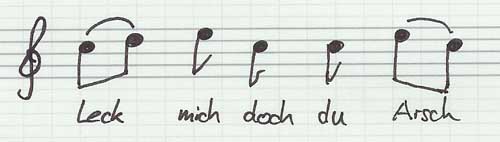 Leck mich doch du Arsch